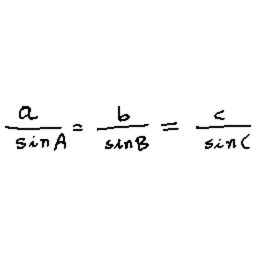 a/sinA = b/sinB = c/sinC